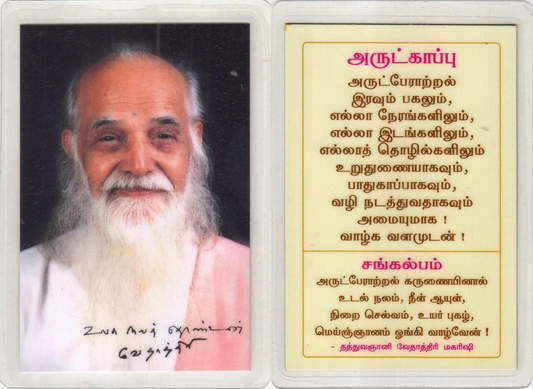 உலக நலத் தொண்டன்
வேதாத்திரி
அருட்காப்பு
அருட்பேராற்றல்
இரவும் பகலும்,
எல்லா நேரங்களிலும்,
எல்லா இடங்களிலும்,
எல்லாத் தொழில்களிலும்
உறுதுணையாகவும்,
பாதுகாப்பாகவும்,
வழி நடத்துவதாகவும்
அமையுமாக !
வாழ்க வளமுடன் !
சங்கல்பம்
அருட்பேராற்றல் கருணையினால்
உடல் நலம், நீள் ஆயுள்,
நிறை செல்வம், உயர் புகழ்,
மெய்ஞ்ஞானம் ஓங்கி வாழ்வேன் !
- தத்துவஞானி வேதாத்திரி மகரிஷி